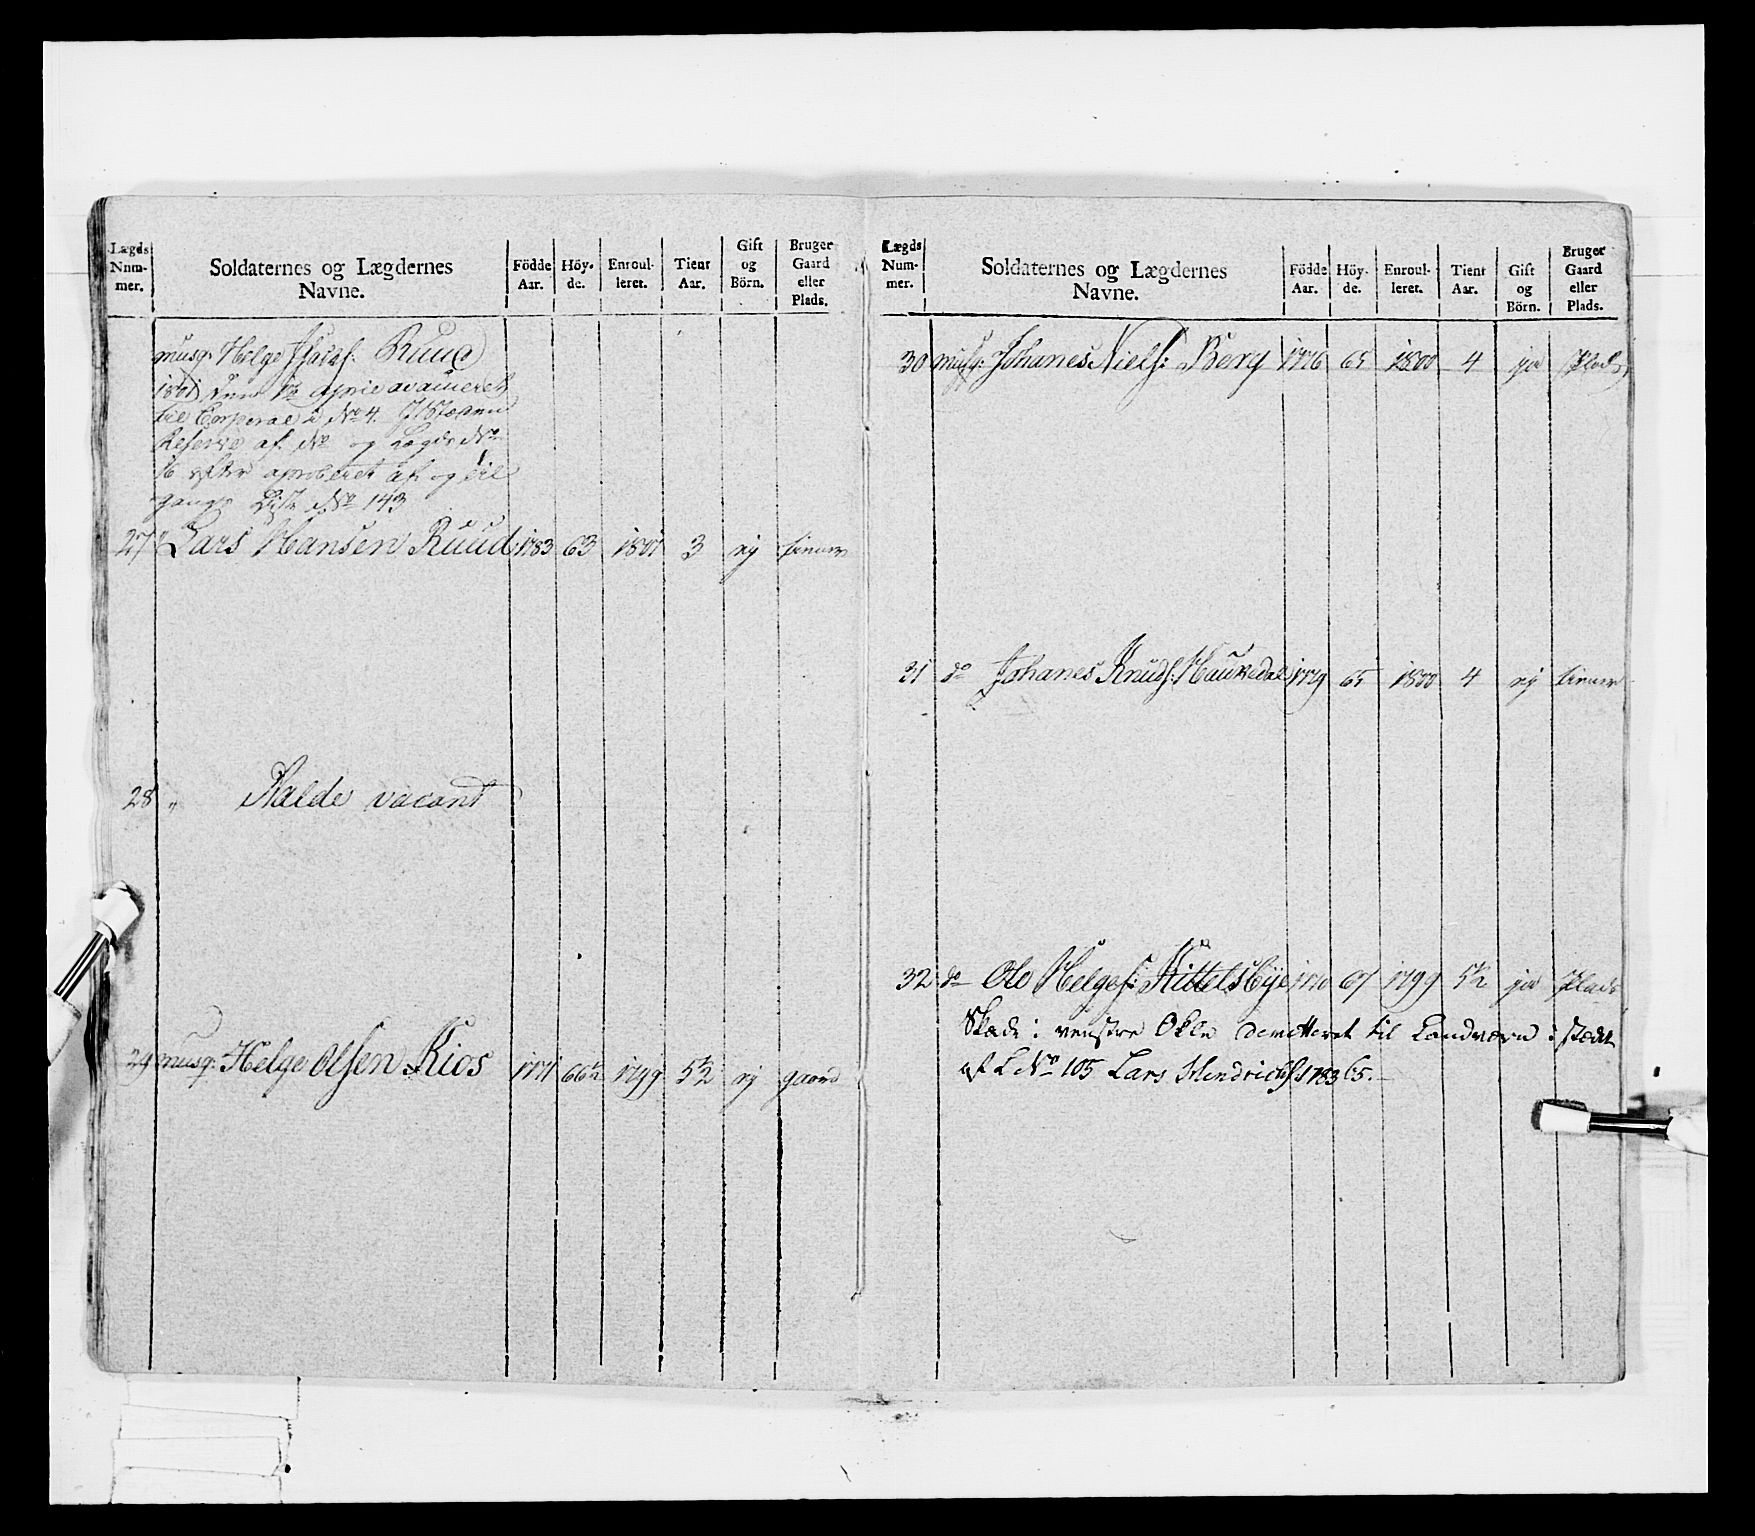 Lægds Num- mer. Soldaternes og Lægdernes Navne. Födde Aar. Höy- de. Enroul- leret. Tient Aar. Gift og Börn. Bruger Gaard eller Plads.
musq: Helge Ruud
1801 den avanceret
til Corporal i No 4.
Reserve af No og Lægds No
aproberet af og til
gangs Liste No 143
27 " Lars Hansen Ruud 1783 63 1801 3 ej tiener
28 " Nalde vacant
29 musq: Helge Olsen Rios 1771 66½ 1799 5½ ej gaard
Lægds Num- mer. Soldaternes og Lægdernes Navne. Födde Aar. Höy- de. Enroul- leret. Tient Aar. Gift og Börn. Bruger Gaard eller Plads.
30 musq: Johanes Niels: Berg 1776 65 1800 4 ja Plads
31 do Johanes Knuds: Haukedal 1779 65 1800 4 ej tiener
32 do Ole Helges: Kittelsbye 1770 67 1799 5½ ja Plads
Skade i venstre Okle demitteret til Landværn i stædet
af L No 105 Lars Hendrichs 1783 65.